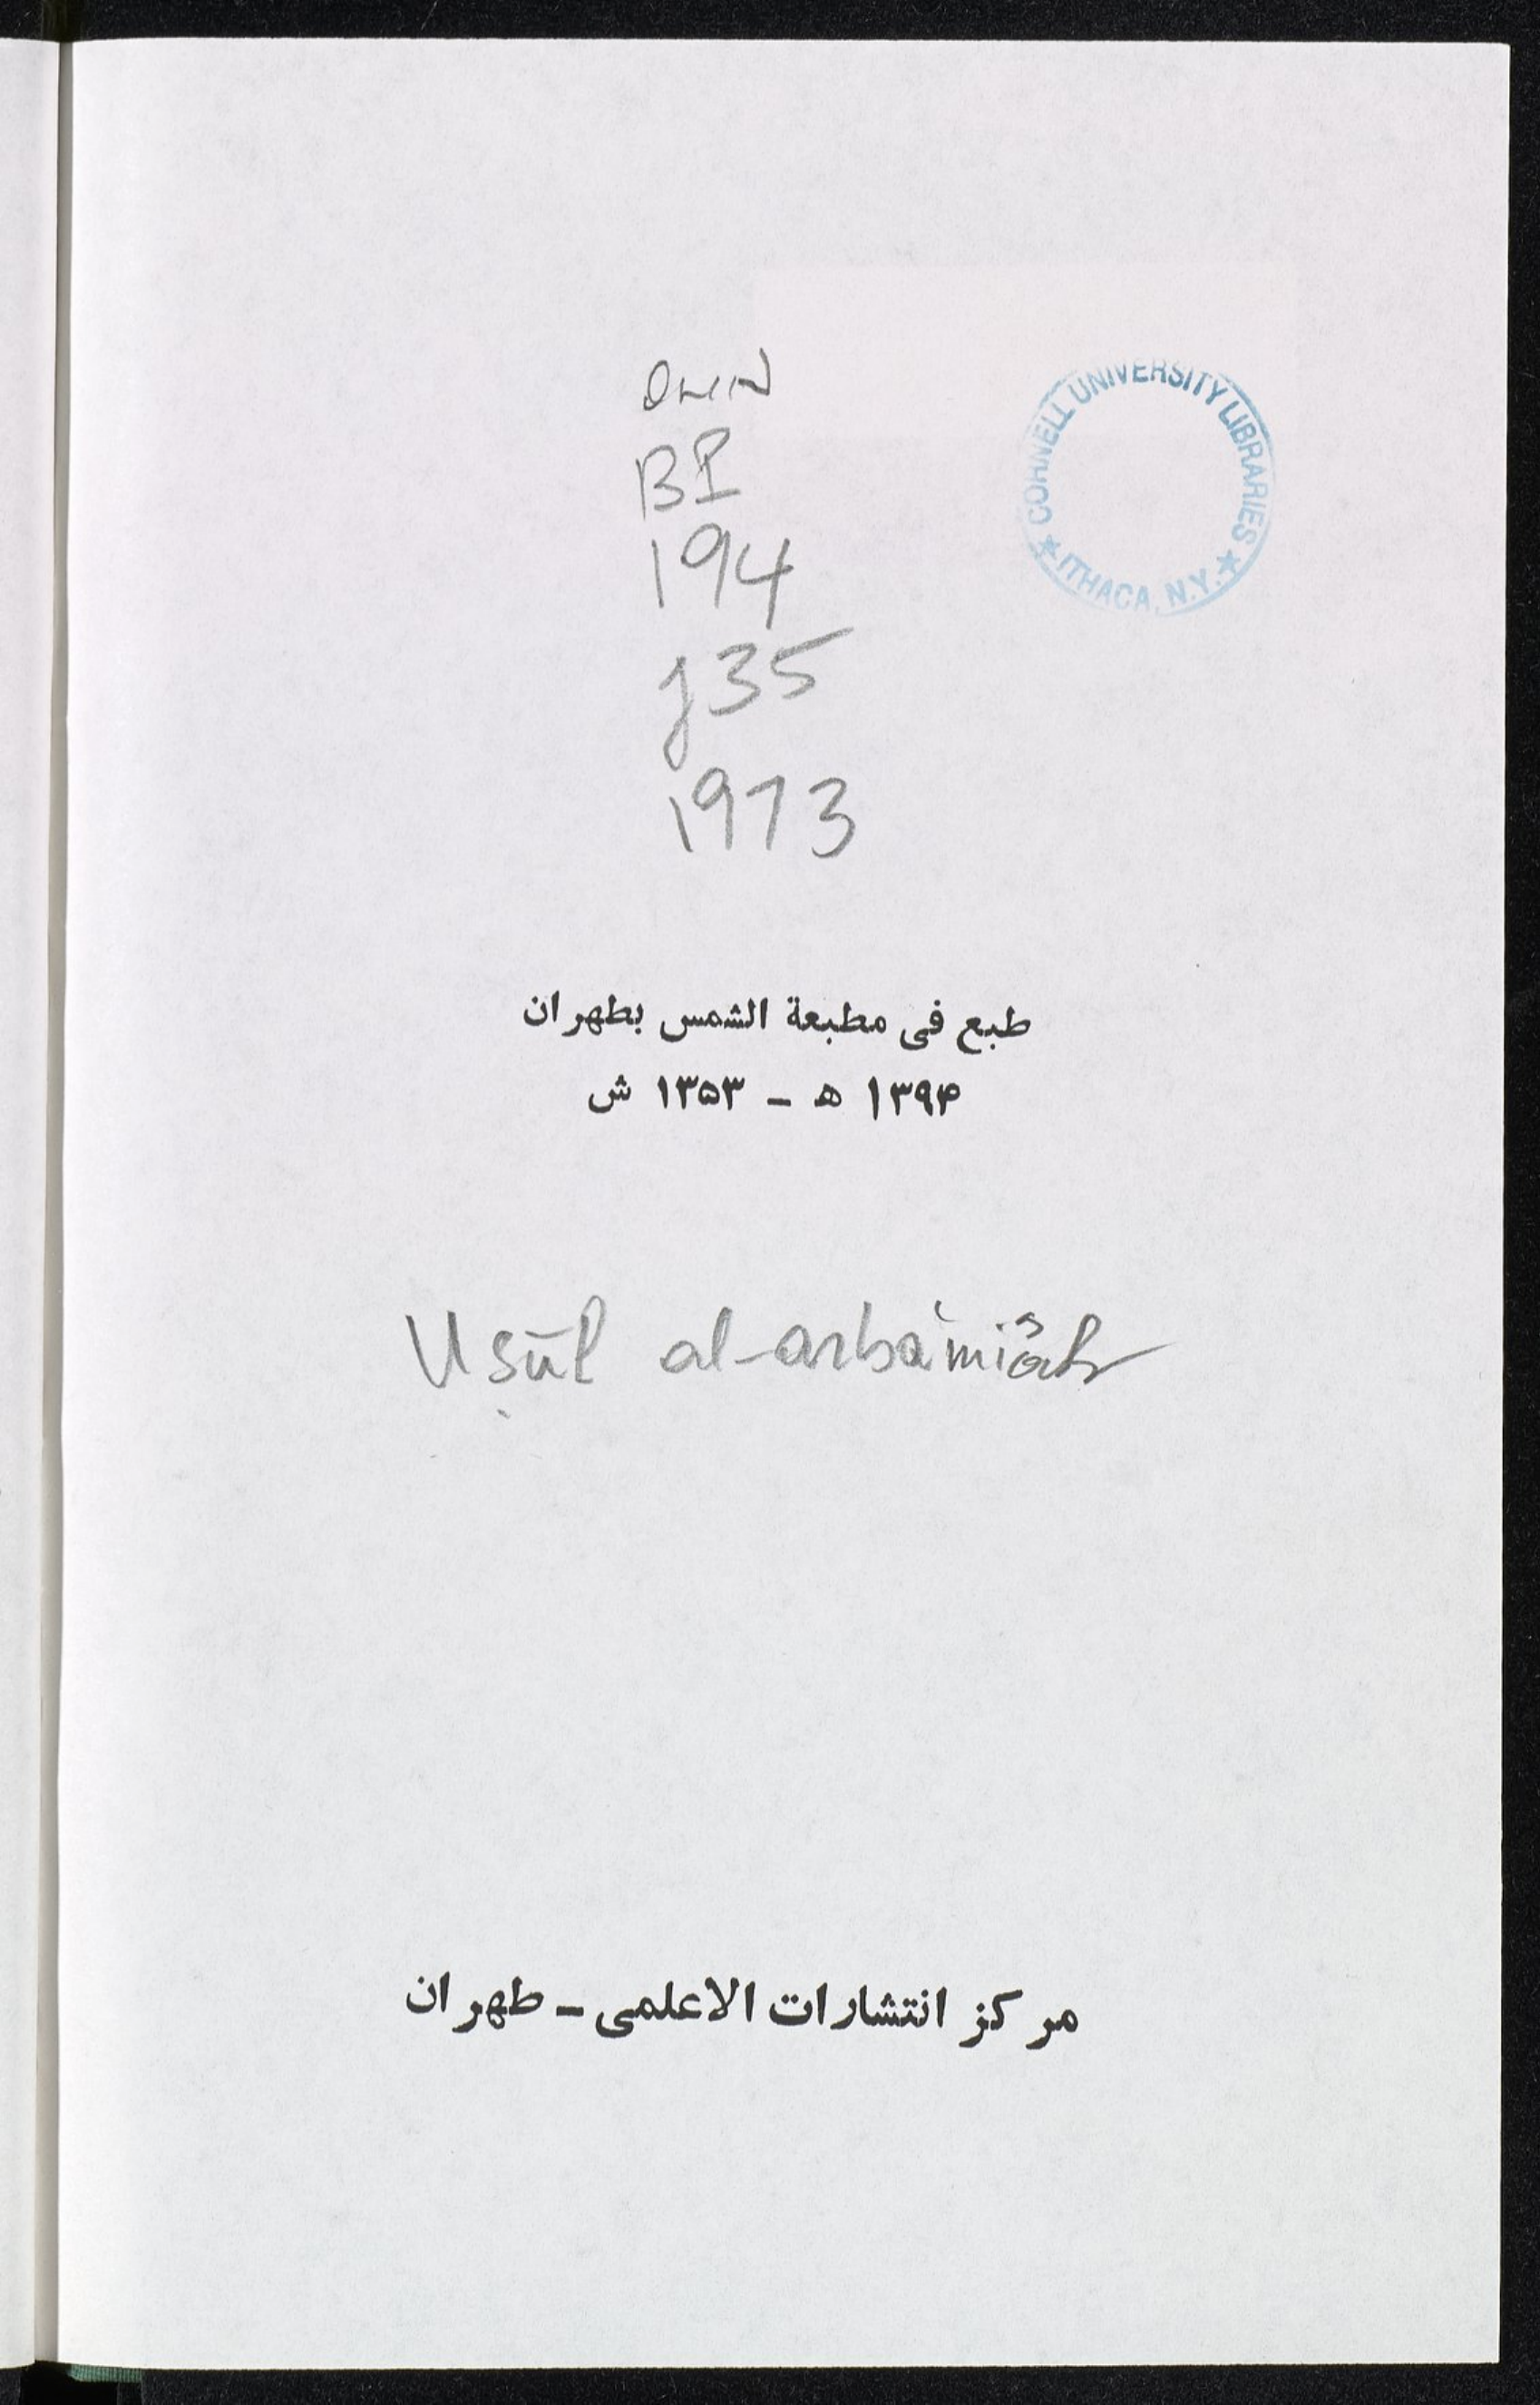 OLIN
BP
194
J35
1973
CORNELL UNIVERSITY LIBRARIES
★ ITHACA, N.Y. ★
طبع فی مطبعة الشمس بطهران
۱۳۹۴ ه – ۱۳۵۳ ش
Uṣūl al-arba‘mi’ah
مرکز انتشارات الاعلمی – طهران